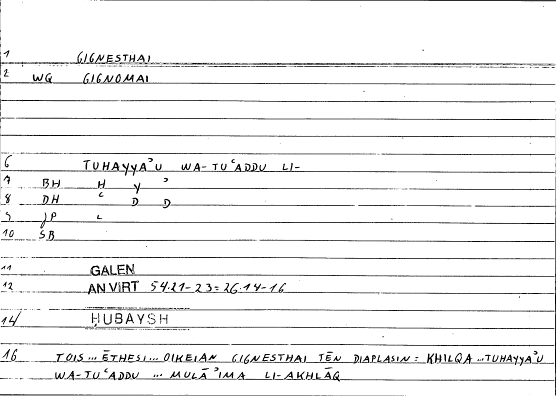 1 GIGNESTHAI
2 WG GIGNOMAI
6 TUHAYYAʾU WA-TUʿADDU LI-
7 BH H Y ʾ
8 DH ʿ D D
9 JP L
10 SB
11 GALEN
12 AN VIRT 54.21-23=26.14-16
14 ḤUBAYSH
16 TOIS... ĒTHESI... OIKEIAN GIGNESTHAI TĒN DIAPLASIN: KHILQA ...TUHAYYAʾU
WA-TUʿADDU ... MULĀʾIMA LI-AKHLĀQ